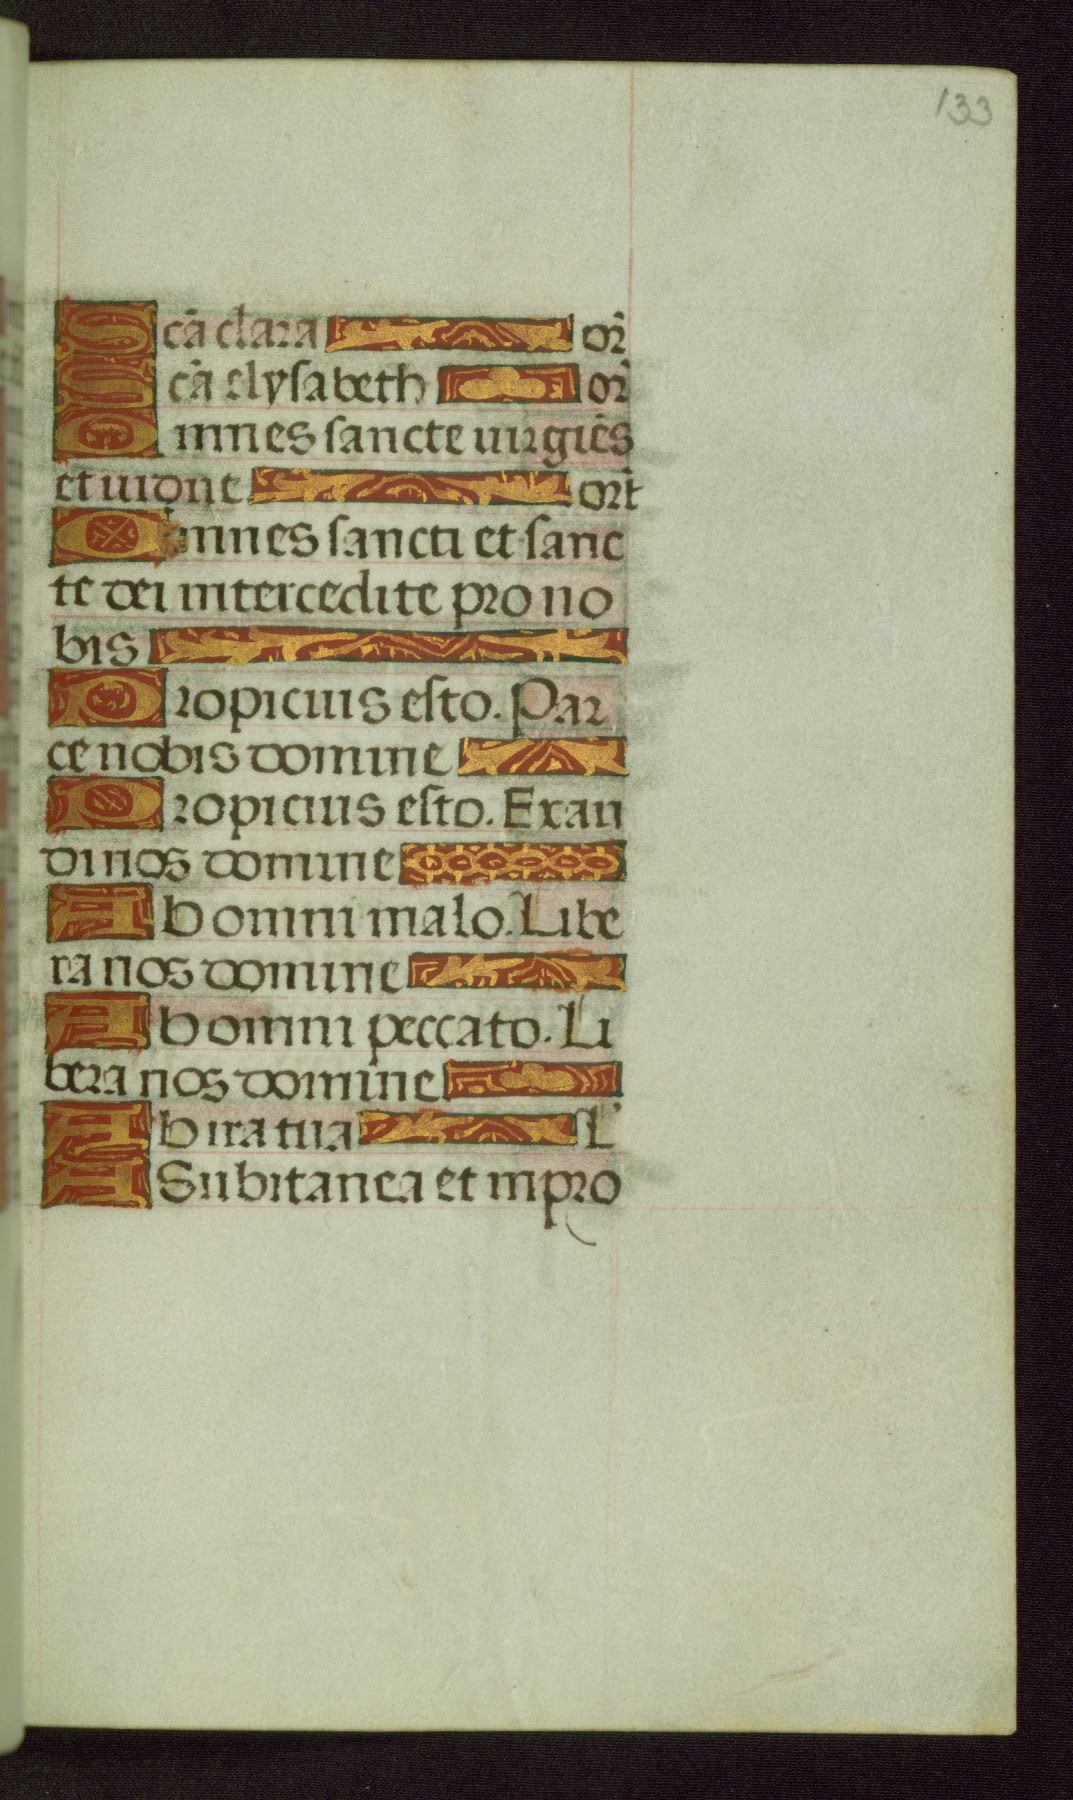 133
Scã clara or̃
Scã elysabeth or̃
Omnes sancte uirgiẽs
et uidue or̃t
Omnes sancti et sanc
te dei intercedite pro no
bis
Propicius esto. Par
ce nobis domine
Propicius esto. Exau
di nos domine
Ab omni malo. Libe
ra nos domine
Ab omni peccato. Li
bera nos domine
Ab ira tua L̃
A Subitanea et inpro